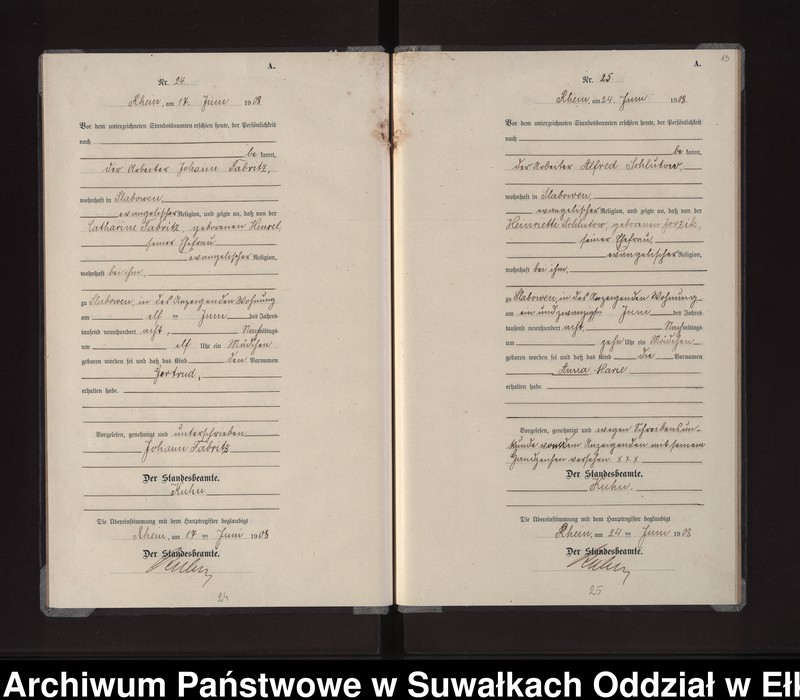 A.
Nr. 24
Rhein, am 17. Juni 1908.
Vor dem unterzeichneten Standesbeamten erschien heute, der Persönlichkeit
nach
be kannt,
der Arbeiter Johann Fabritz,
wohnhaft in Slabowen,
evangelischer Religion, und zeigte an, daß von der
Catharine Fabritz, geborenen Hensel,
seiner Ehefrau
evangelischer Religion,
wohnhaft bei ihm,
zu Slabowen, in des Anzeigenden Wohnung
am elf ten Juni des Jahres
tausend neunhundert acht, Nachmittags
um elf Uhr ein Mädchen
geboren worden sei und daß das Kind den Vornamen
Gertrud,
erhalten habe.
Vorgelesen, genehmigt und unterschrieben
Johann Fabritz
Der Standesbeamte.
Kuhn
Die Übereinstimmung mit dem Hauptregister beglaubigt
Rhein, am 17 ten Juni 1908
Der Standesbeamte.
Kuhn
24
13
A.
Nr. 25
Rhein, am 24. Juni 1908.
Vor dem unterzeichneten Standesbeamten erschien heute, der Persönlichkeit
nach
be kannt,
der Arbeiter Alfred Schlutow,
wohnhaft in Slabowen,
evangelischer Religion, und zeigte an, daß von der
Henriette Schlutow, geborenen Jorzik,
seiner Ehefrau,
evangelischer Religion,
wohnhaft bei ihm,
zu Slabowen, in des Anzeigenden Wohnung
am ein und zwanzigsten Juni des Jahres
tausend neunhundert acht Nachmittags
um zehn Uhr ein Mädchen
geboren worden sei und daß das Kind die Vornamen
Anna Marie
erhalten habe.
Vorgelesen, genehmigt und wegen Schreibensun-
kunde von dem Anzeigenden mit seinem
Handzeichen versehen. x x x
Der Standesbeamte.
Kuhn.
Die Übereinstimmung mit dem Hauptregister beglaubigt
Rhein, am 24 ten Juni 1908
Der Standesbeamte.
Kuhn
25
Archiwum Państwowe w Suwałkach Oddział w Eł